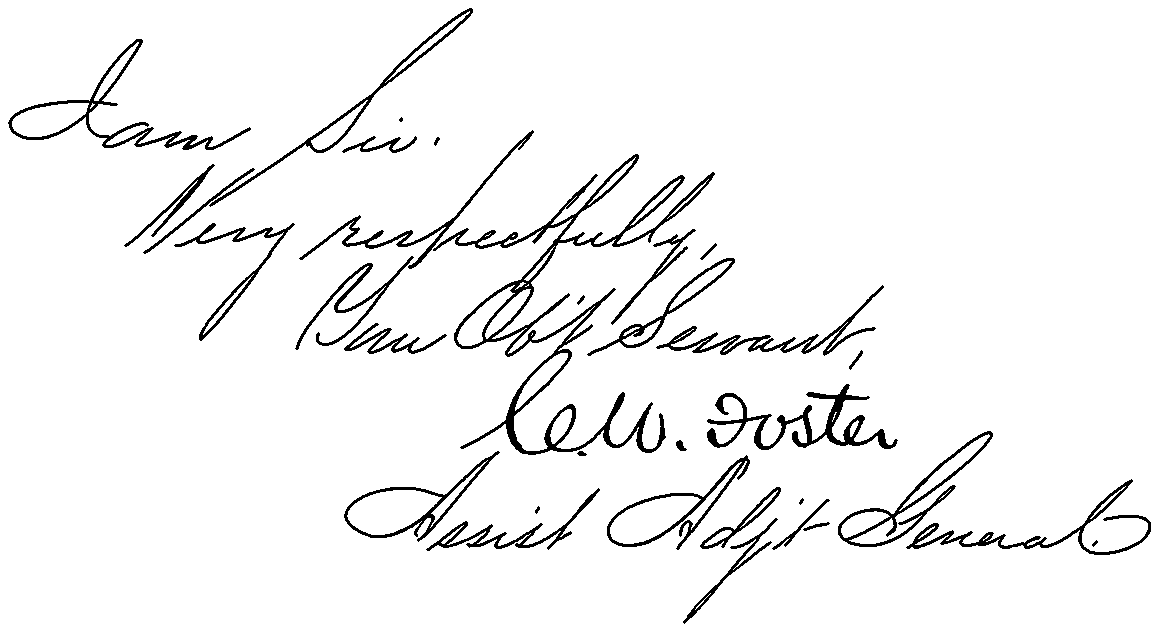 I am Sir.
Very respectfully,
Your Ob't Servant,
C. W. Foster
Assist Adj't General.